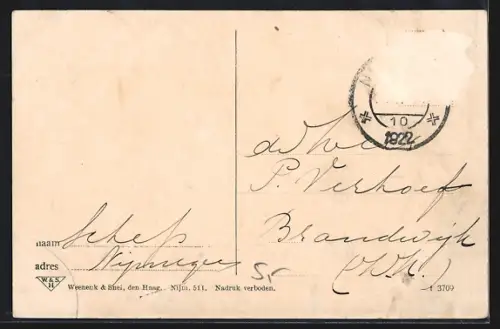 10
1922
de Heer
P. Verhoef
Brandwijk
(Z.H.)
naam Schefs
adres Nijmegen
W&S
H
Weenenk & Snel, den Haag. Nijm. 511. Nadruk verboden.
1 3709